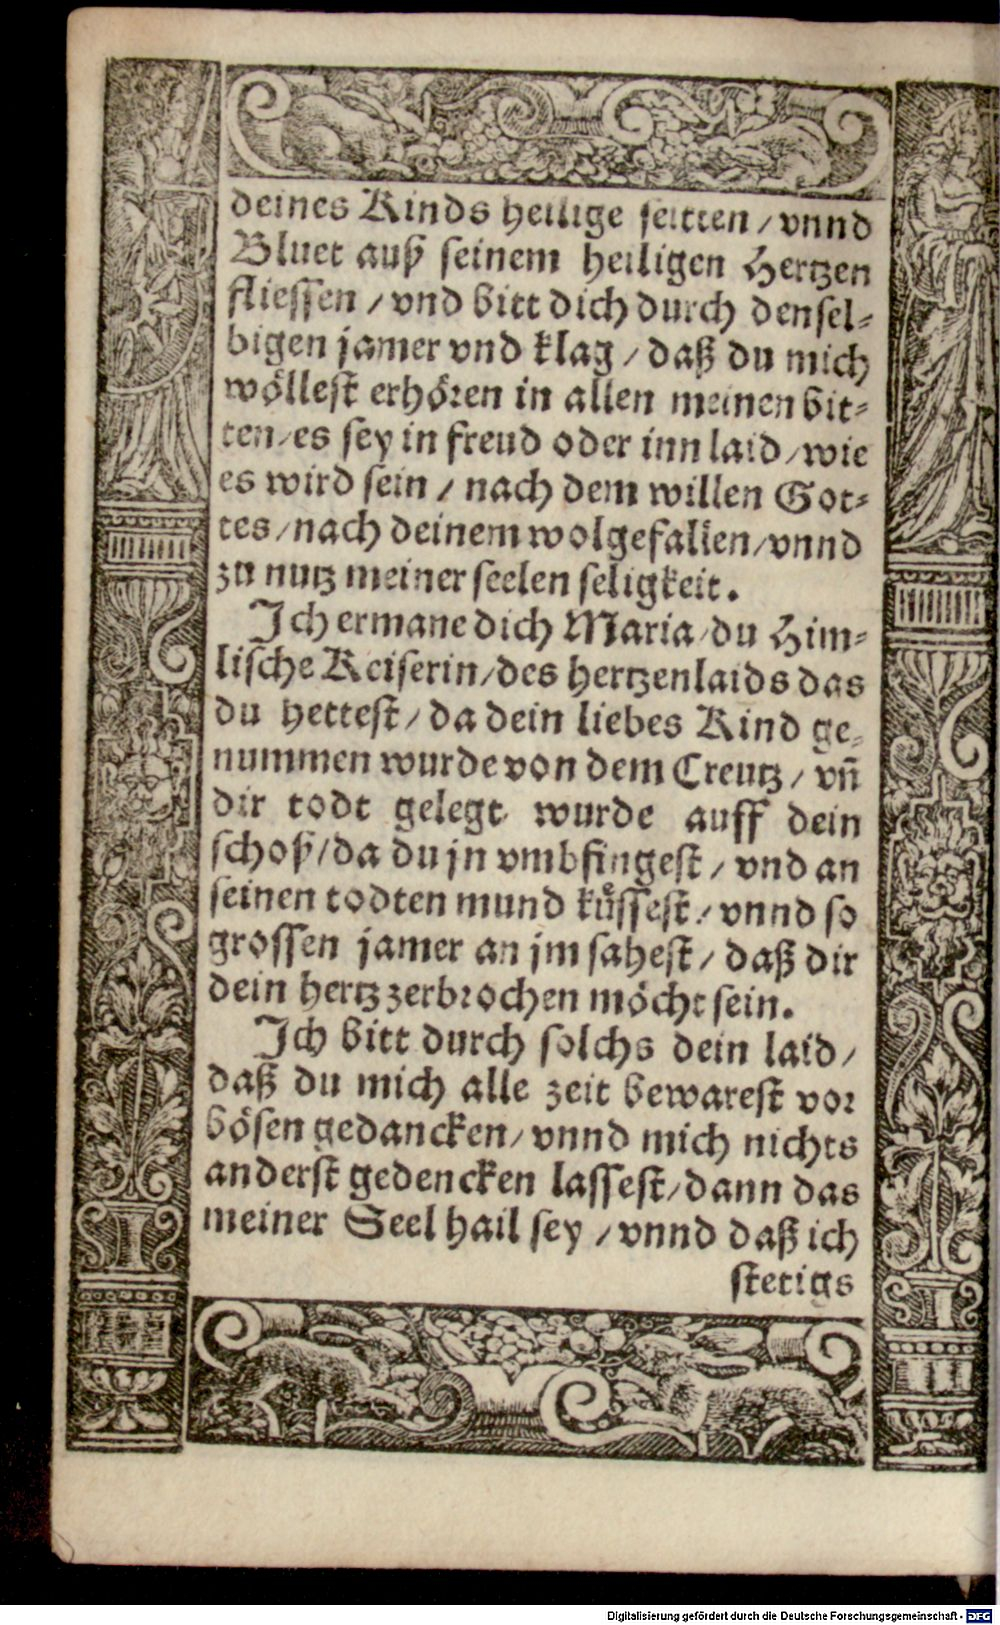 deines Kinds heilige seitten / vnnd
Bluet auß seinem heiligen Hertzen
fliessen / vnd bitt dich durch densel⸗
bigen jamer vnd klag / daß du mich
wöllest erhören in allen meinen bit⸗
ten / es sey in freud oder inn laid / wie
es wird sein / nach dem willen Got⸗
tes / nach deinem wolgefallen / vnnd
zu nutz meiner seelen seligkeit.
Ich ermane dich Maria / du Him⸗
lische Keiserin / des hertzenlaids das
du hettest / da dein liebes Kind ge⸗
nummen wurde von dem Creutz / vñ
dir todt gelegt wurde auff dein
schoß / da du jn vmbfingest / vnd an
seinen todten mund küssest / vnnd so
grossen jamer an jm sahest / daß dir
dein hertz zerbrochen möcht sein.
Ich bitt durch solchs dein laid /
daß du mich alle zeit bewarest vor
bösen gedancken / vnnd mich nichts
anderst gedencken lassest / dann das
meiner Seel hail sey / vnnd daß ich
stetigs
Digitalisierung gefördert durch die Deutsche Forschungsgemeinschaft - DFG